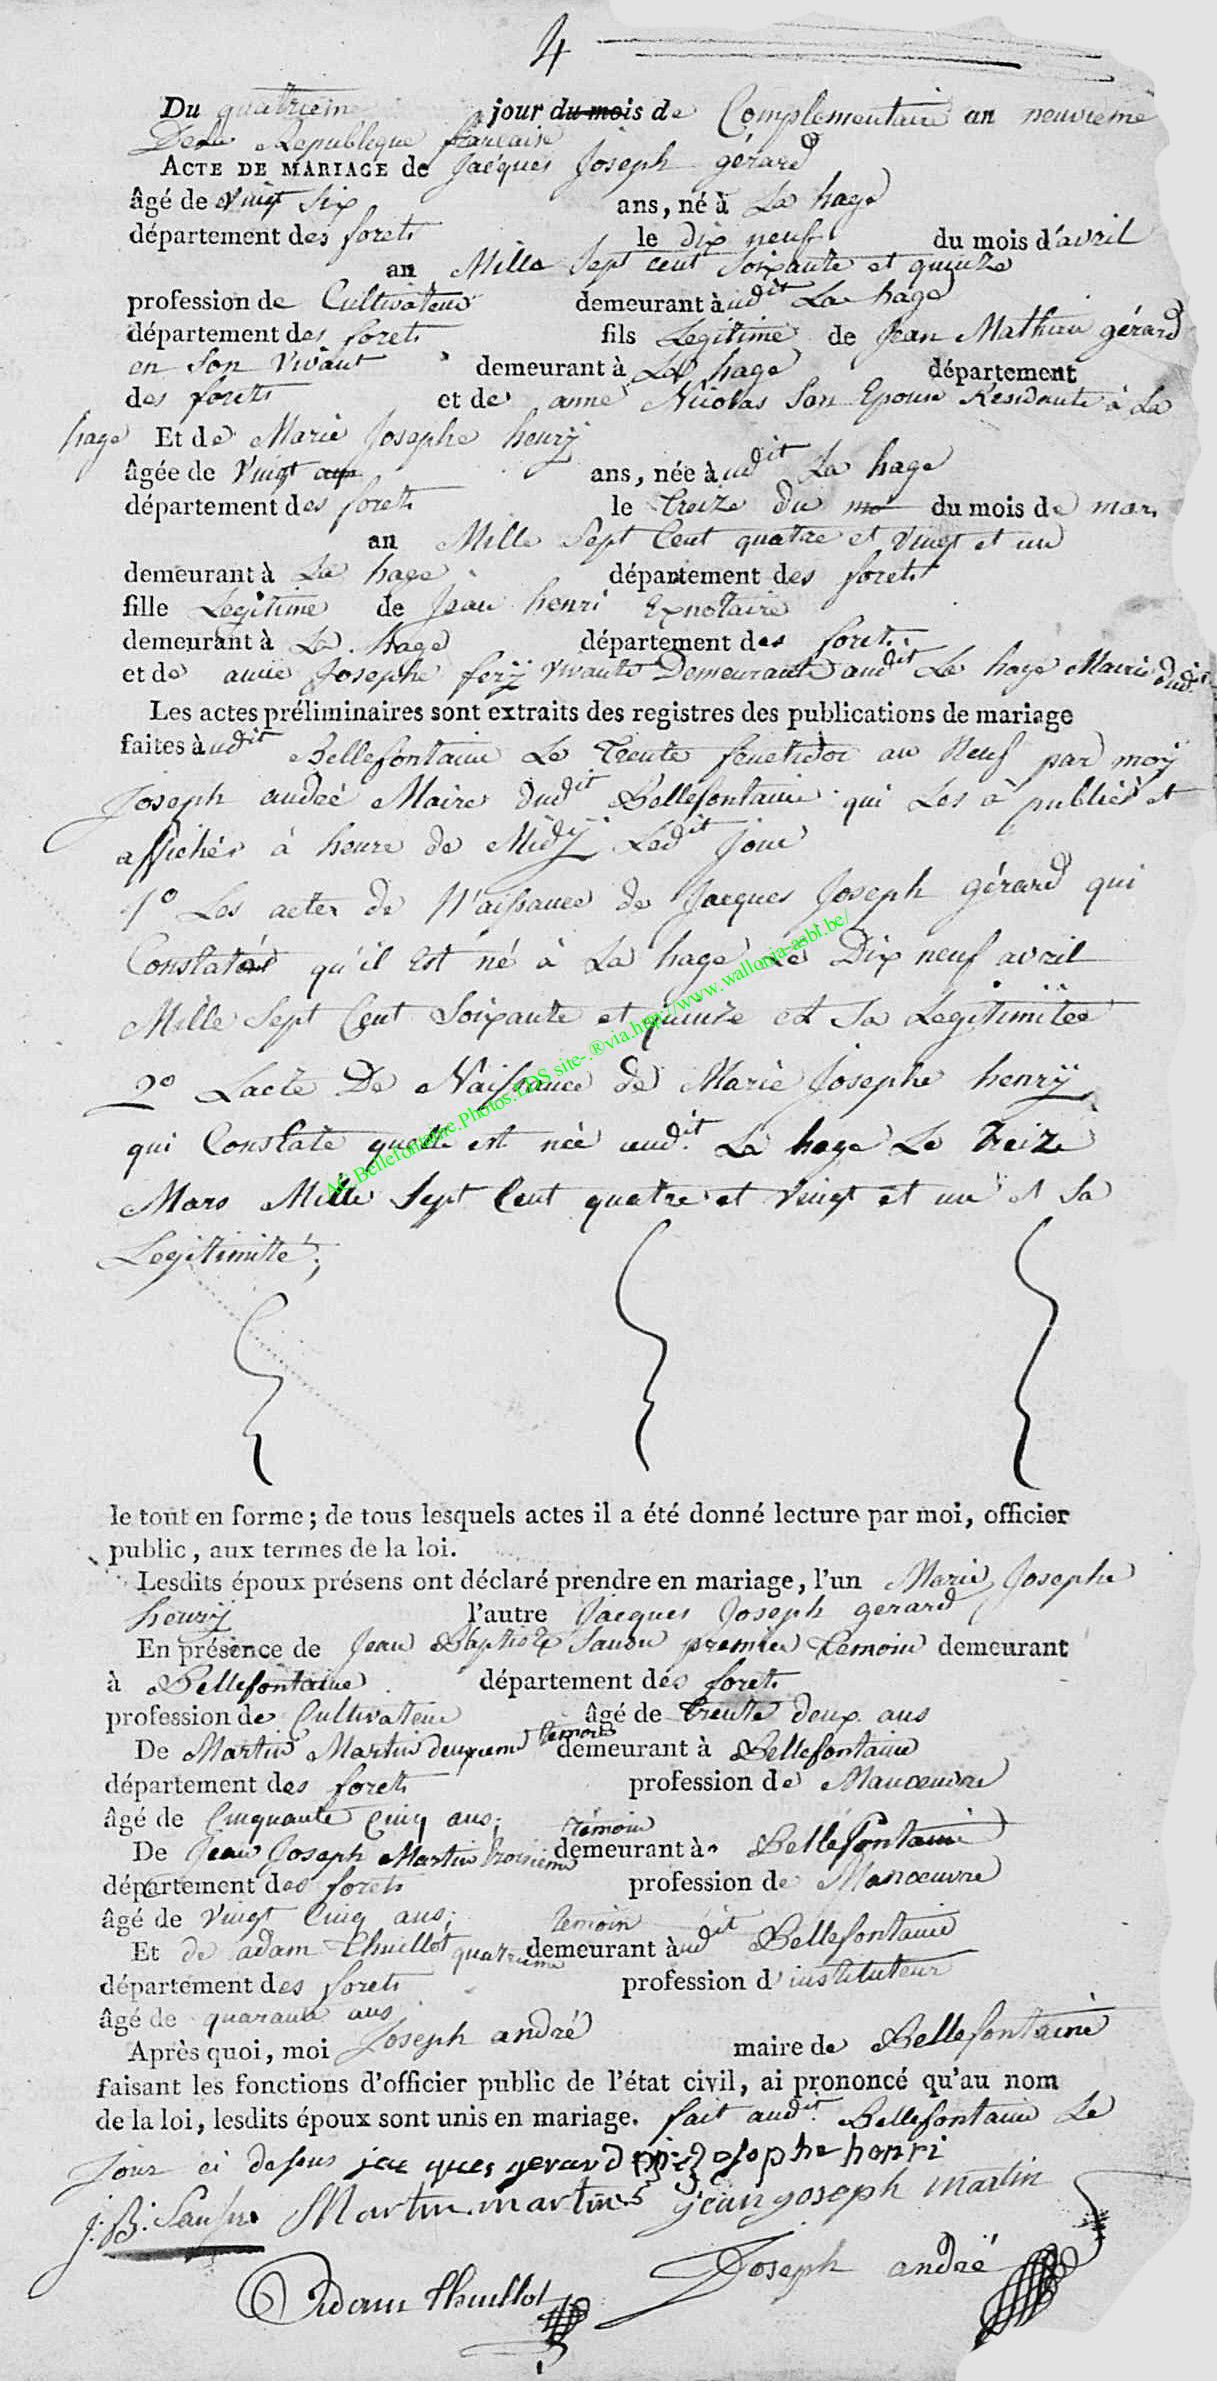 4
Du quatrieme jour du mois de Complementaire an neuvieme
De la Republique francaise
ACTE DE MARIAGE de Jacques Joseph gérard
âgé de vingt six ans, né à La hage
département des forets le dix neuf du mois d'avril
an Mille Sept cent Soixante et quinze
profession de Cultivateur demeurant à udit La hage
département des forets fils Legitime de Jean Mathieu gérard
en Son Vivant demeurant à La hage département
des forets et de anne Nicolas Son Epouse Residante à La
hage Et de Marie Josephe henrÿ
âgée de Vingt ans ans, née à udit La hage
département des forets le treize du mo du mois de mars
an Mille Sept Cent quatre et Vingt et un
demeurant à La hage département des forets
fille Legitime de Jean henri Exnotaire
demeurant à La hage département des forets
et de anne Josephe ferÿ vivante Demeurante audit La hage Mairie dudit
Les actes préliminaires sont extraits des registres des publications de mariage
faites à udit Bellefontaine Le trente fructidor an Neuf par moÿ
Joseph andré Maire dudit Bellefontaine qui Les a publiés et
affichés à heure de Midÿ Ledit Jour
1º Les actes de N'aissance de Jacques Joseph gérard qui
Constatés qu'il Est né à La hage Le Dix neuf avril
Mille Sept Cent Soixante et quinze et Sa Legitimitée
2º Lacte De Naissance de Marie Josephe henrÿ
qui Constate quelle est née audit La hage Le Treize
Mars Mille Sept Cent quatre et Vingt et un et Sa
Legitimité;
AC.Bellefontaine.Photos.EDS site-.®via.http://www.wallonia-asbl.be/
le tout en forme; de tous lesquels actes il a été donné lecture par moi, officier
public, aux termes de la loi.
Lesdits époux présens ont déclaré prendre en mariage, l'un Marie Josephe
henrÿ l'autre Jacques Joseph gerard
En présence de Jean Baptiste premier temoin demeurant
à Bellefontaine département des forets
profession de Cultivateur âgé de trente deux ans
De Martin Martin deuxieme temoin demeurant à Bellefontaine
département des forets profession de Manoeuvre
âgé de Cinquante Cinq ans;
De Jean Joseph Martin troisieme témoin demeurant à Bellefontaine
département des forets profession de Manoeuvre
âgé de Vingt Cinq ans;
Et de adam thuillot quatrieme temoin demeurant à udit Bellefontaine
département des forets profession d'instituteur
âgé de quarante ans
Après quoi, moi Joseph andré maire de Bellefontaine
faisant les fonctions d'officier public de l'état civil, ai prononcé qu'au nom
de la loi, lesdits époux sont unis en mariage. fait audit Bellefontaine Le
Jour ci dessus jacques gerard josophe henri
J: B: Martin martin jean joseph martin
Joseph andré
Adam thuillot